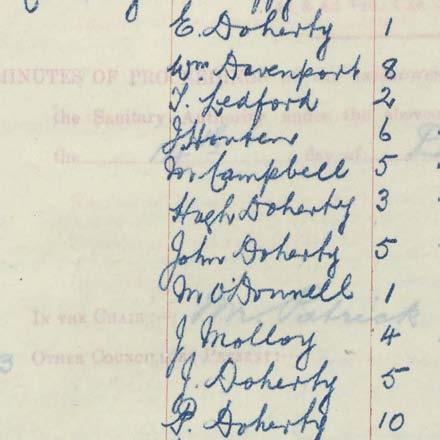 E. Doherty 1
Wm Davenport 8
T. Ledford 2
J Hunter 6
M Campbell 5
Hugh Doherty 3
John Doherty 5
M O'Donnell 1
J Molloy 4
J. Doherty 5
P. Doherty 10
MINUTES OF
the Sanitary Authority under the above
the day of
IN THE CHAIR:— Mr Patrick
OTHER COUNCILLORS PRESENT:
3